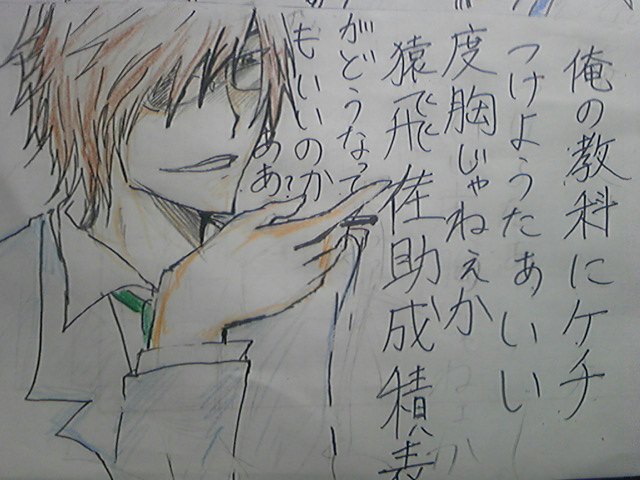 俺の教科にケチ
つけようたあいい
度胸じゃねぇか
猿飛佐助成積表
がどうなって
もいいのか
ああ?